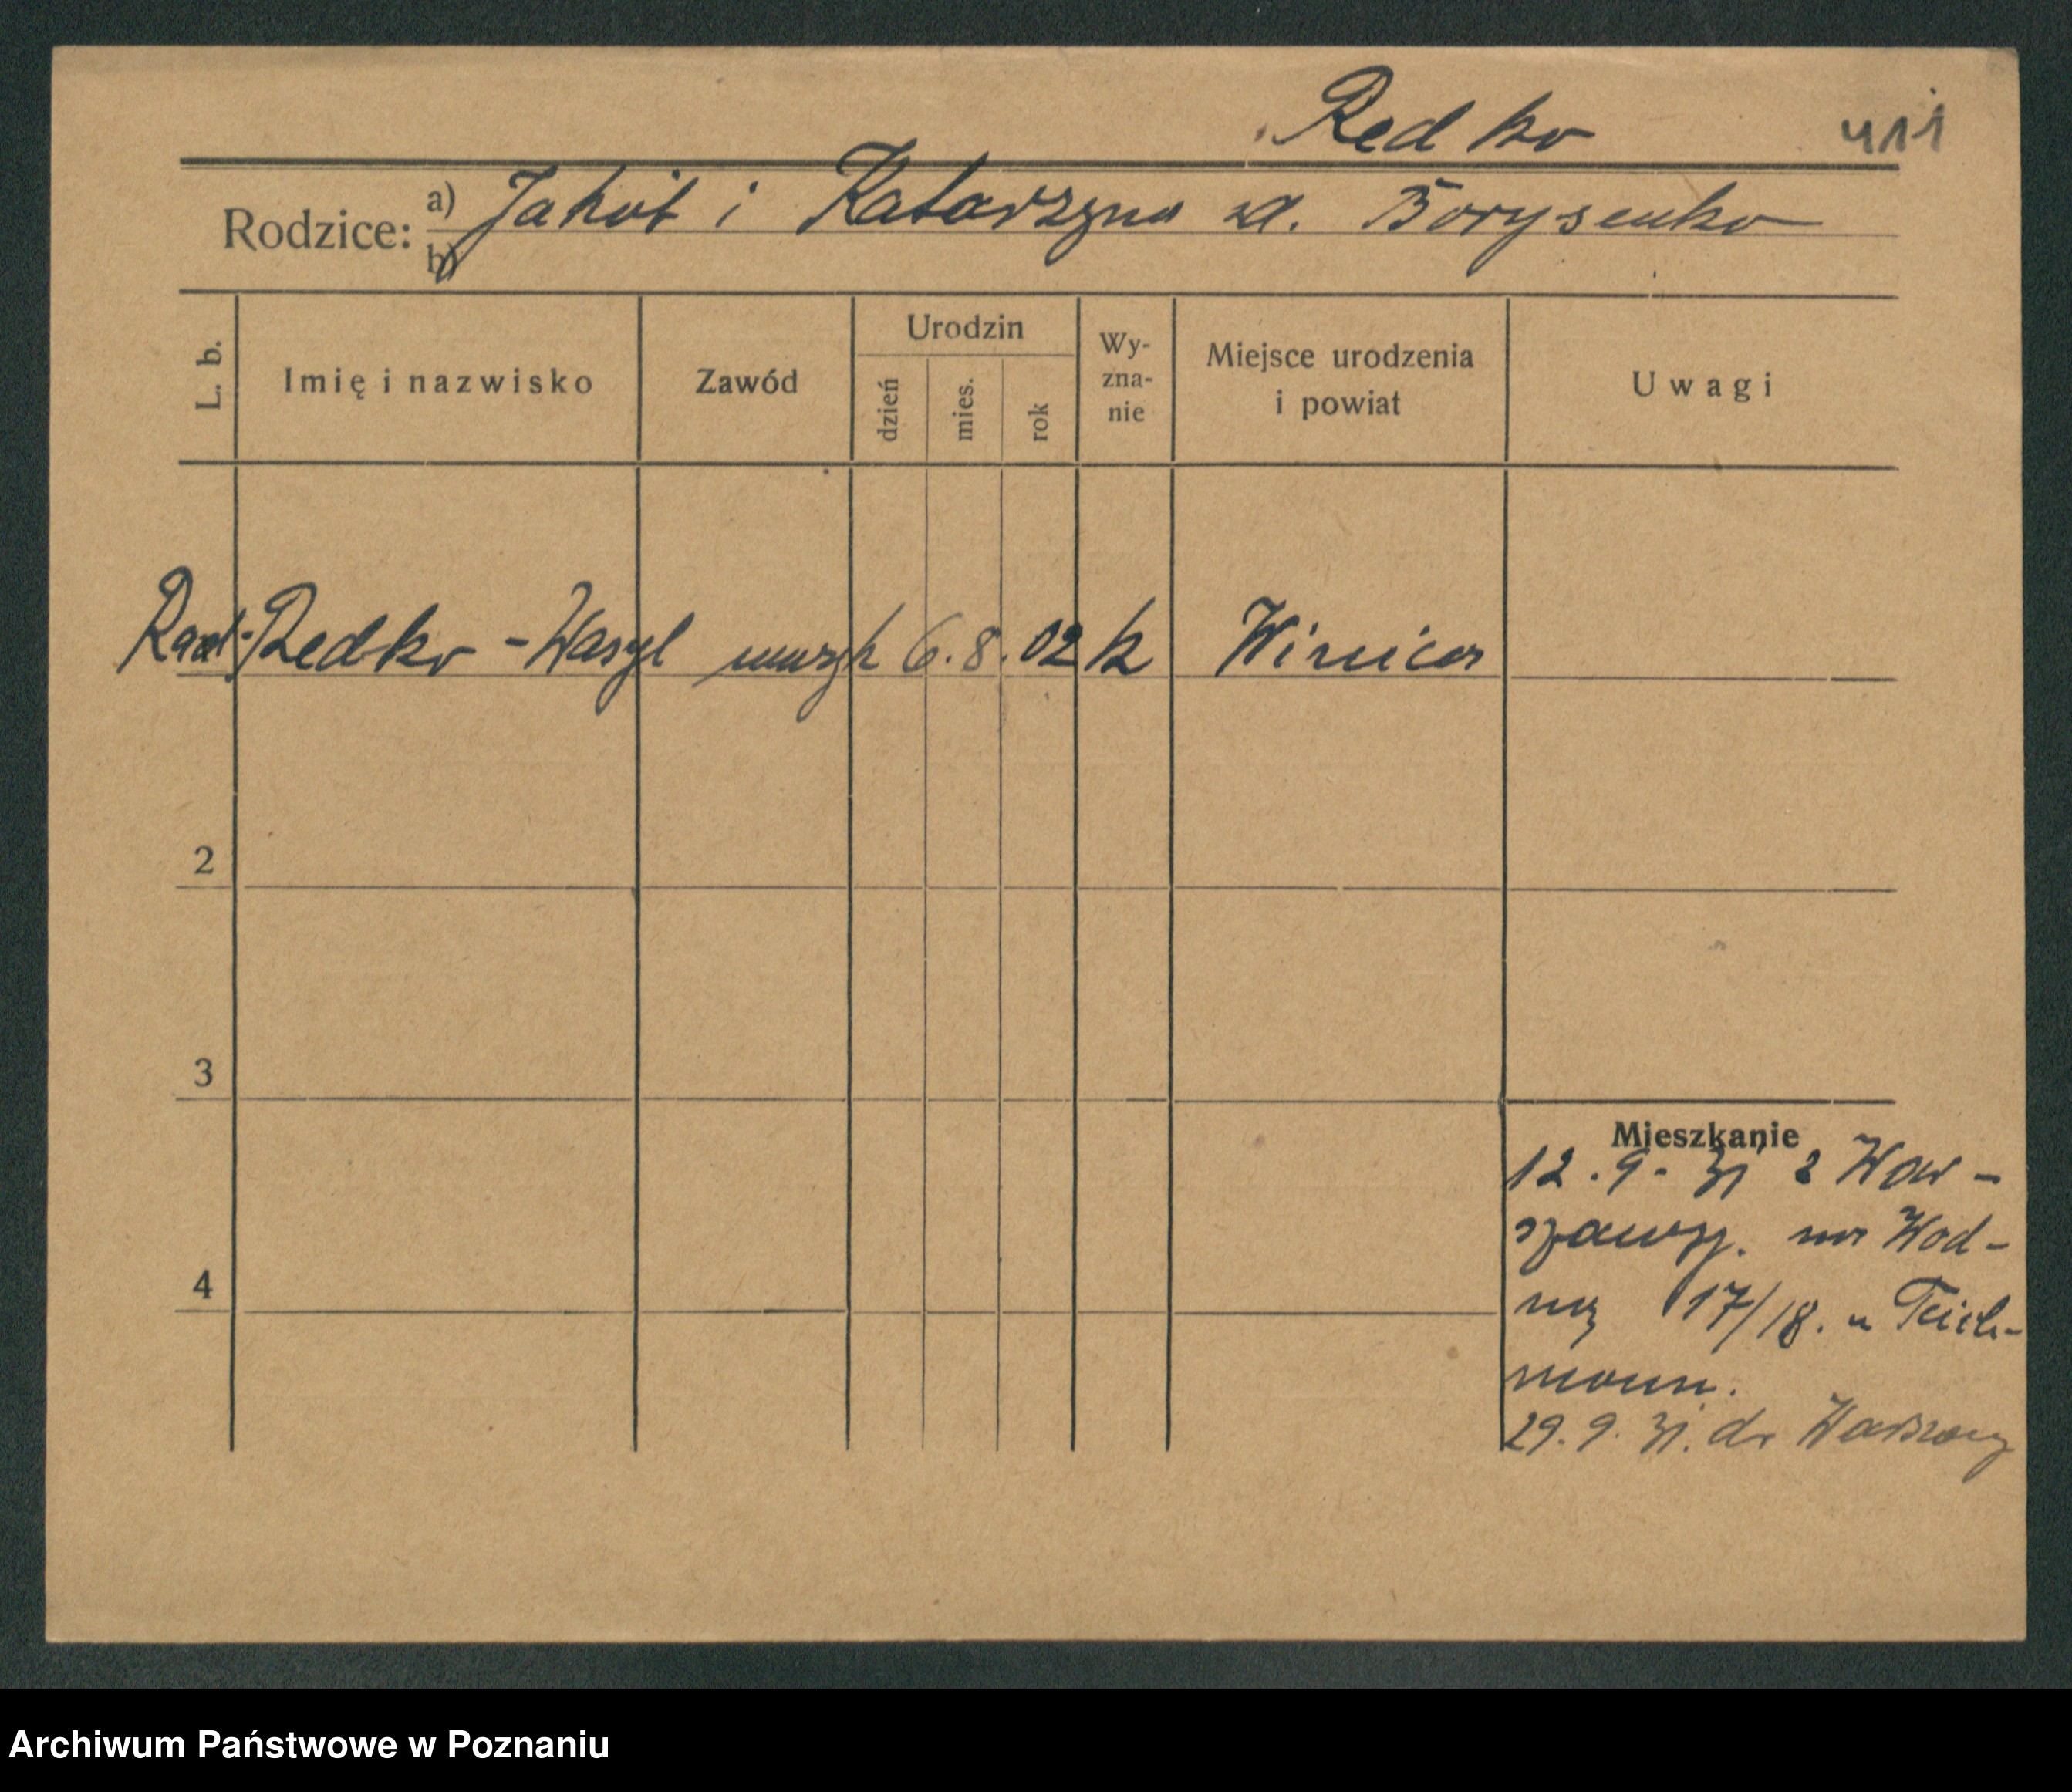 Redko 411
Rodzice: a) Jakób i Katarzyna zd. Borysenko
b)
L. b.
Imię i nazwisko
Zawód
Urodzin
dzień
mies.
rok
Wy-
zna-
nie
Miejsce urodzenia
i powiat
Uwagi
Rad-Redko - Wasyl muzyk 6. 8. 02 k Winnica
2
3
4
Mieszkanie
12. 9. 31 z War-
szawy. na Wod-
ną 17/18. u Teich-
mann.
29. 9. 31. do Warszawy
Archiwum Państwowe w Poznaniu